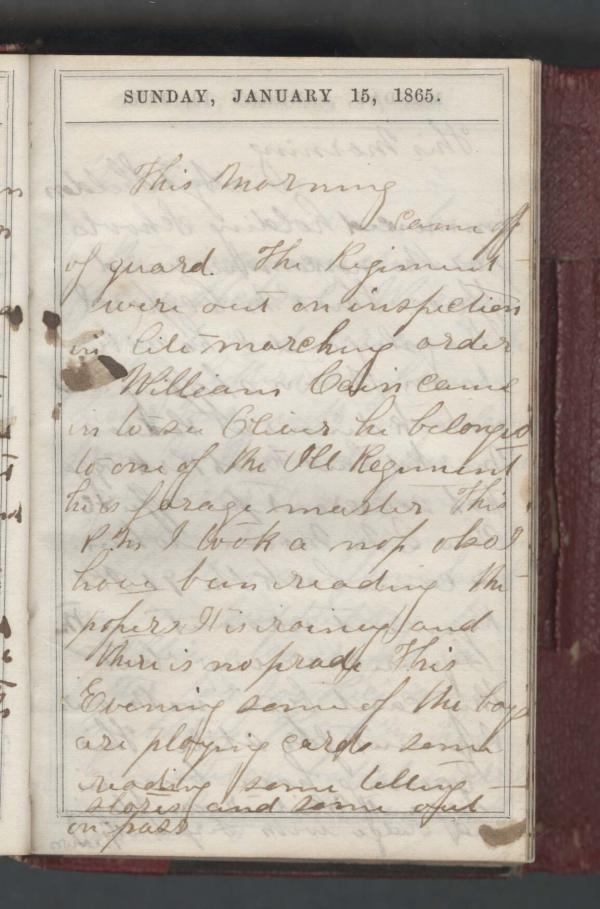 SUNDAY, JANUARY 15, 1865.
This Morning
came off
of guard. The Regiment
were out on inspection
in lite marching order
William Cain came
in to see Oliver he belongs
to one of the Ill Regiment
he is forage master This
P.M. I took a nap also I
have been reading the
papers It is rainey and
there is no prade This
Evening some of the boys
are playing cards some
reading some telling
stories and some out
on pass